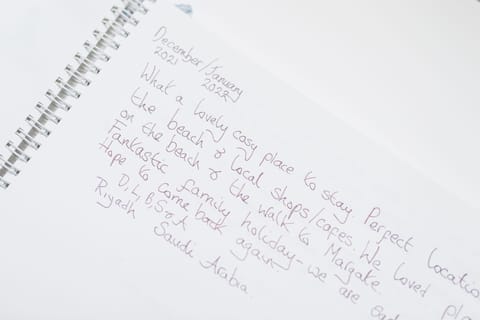 December/January
2021 2022
What a lovely cosy place to stay. Perfect locatio
the beach & local shops/cafes. We loved pla
on the beach & the walk to Margate.
Fantastic family holiday - we are
Hope to come back again.
D, L, B, S & A
Riyadh
Saudi Arabia